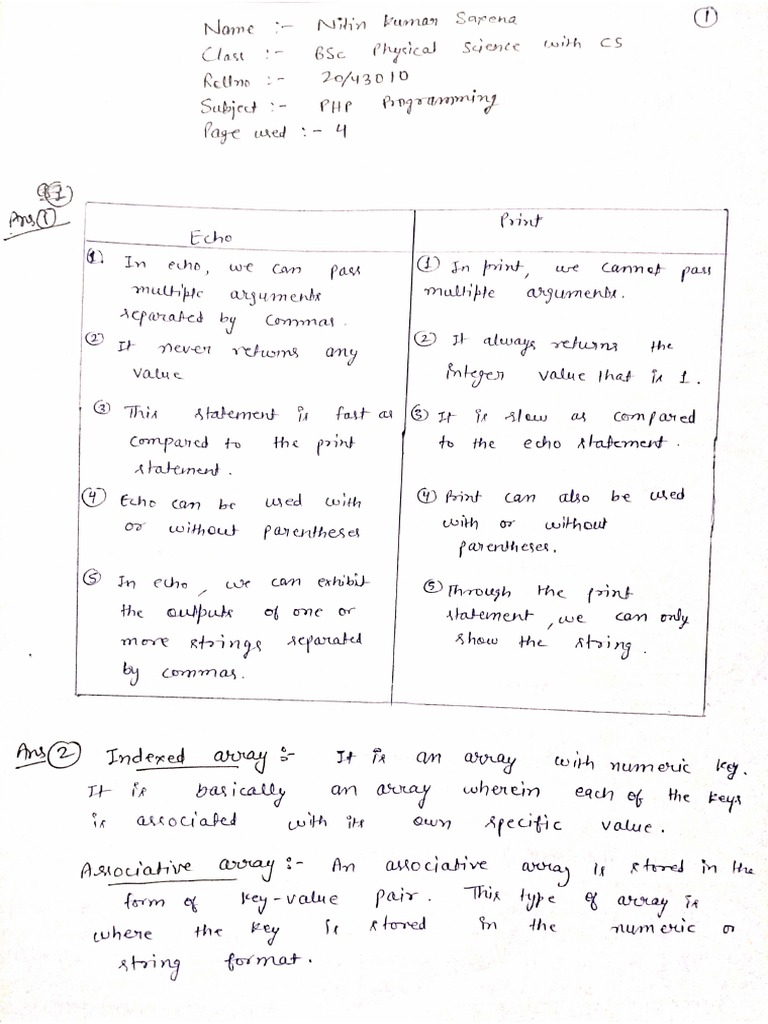 1
Name :- Nitin Kumar Saxena
Class :- BSc Physical Science with CS
Rollno :- 20/43010
Subject :- PHP Programming
Page used :- 4
Ans 1
Echo
① In echo, we can pass
multiple arguments
separated by commas.
② It never returns any
value
③ This statement is fast as
compared to the print
statement.
④ Echo can be used with
or without parentheses
⑤ In echo, we can exhibit
the outputs of one or
more strings separated
by commas.
Print
① In print, we cannot pass
multiple arguments.
② It always returns the
integer value that is 1.
③ It is slow as compared
to the echo statement.
④ Print can also be used
with or without
parentheses.
⑤ Through the print
statement, we can only
show the string.
Ans ② Indexed array :- It is an array with numeric key.
It is basically an array wherein each of the keys
is associated with its own specific value.
Associative array :- An associative array is stored in the
form of key-value pair. This type of array is
where the key is stored in the numeric or
string format.